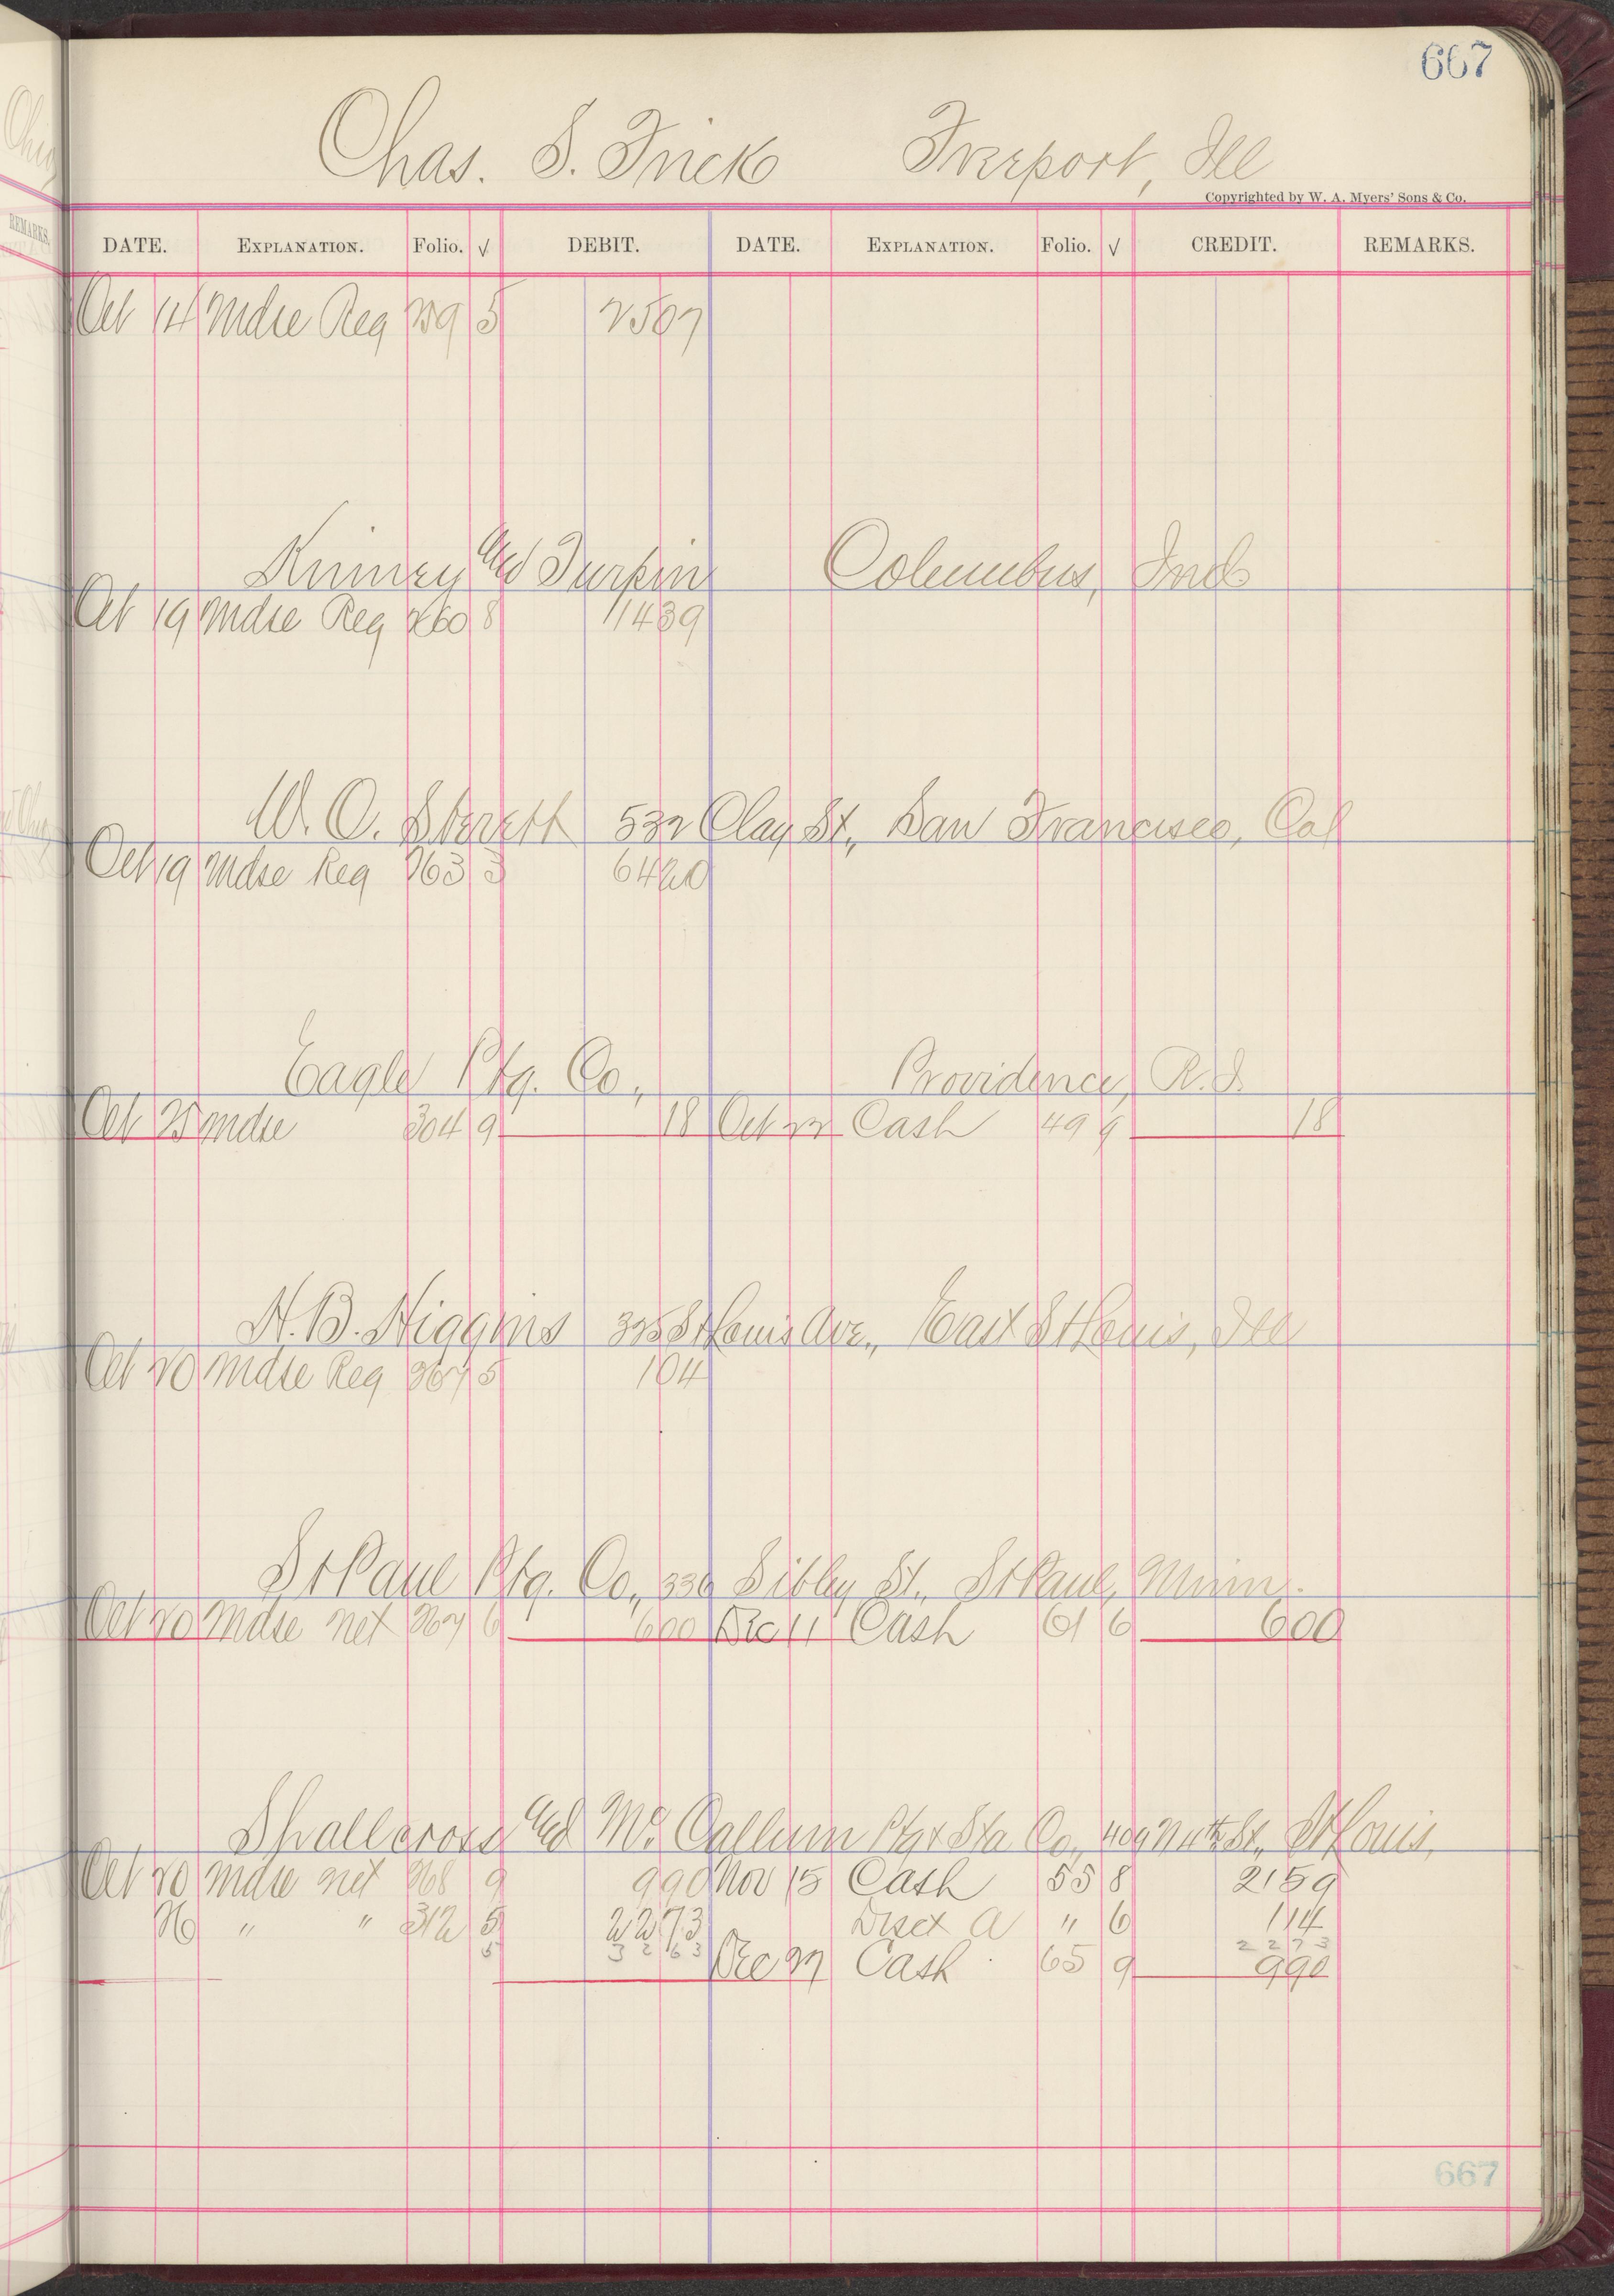 667
Chas. S. Frick Freeport, Ill
Copyrighted by W. A. Myers' Sons & Co.
DATE. EXPLANATION. Folio. √ DEBIT. DATE. EXPLANATION. Folio. √ CREDIT. REMARKS.
Oct 14 Mdse Reg 259 5 2507
Kinney and Turpin Columbus, Ind
Oct 19 Mdse Reg 260 8 1439
W. O. Sterett 532 Clay St., San Francisco, Cal
Oct 19 Mdse Reg 263 3 6420
Eagle Ptg. Co., Providence, R.I.
Oct 25 Mdse 304 9 18 Oct 22 Cash 49 9 18
H. B. Higgins 325 St Louis Ave., East St Louis, Ill
Oct 20 Mdse Reg 267 5 104
St Paul Ptg. Co., 336 Sibley St., St Paul, Minn.
Oct 20 Mdse net 267 6 600 Dec 11 Cash 61 6 600
Shallcross and Mc Callum Ptg & Sta Co., 409 N 4th St., St Louis,
Oct 20 Mdse net 268 9 990 Nov 15 Cash 55 8 2159
26 " " 312 5 2273 Disct A " 6 114
5 3263 2273
Dec 27 Cash 65 9 990
667